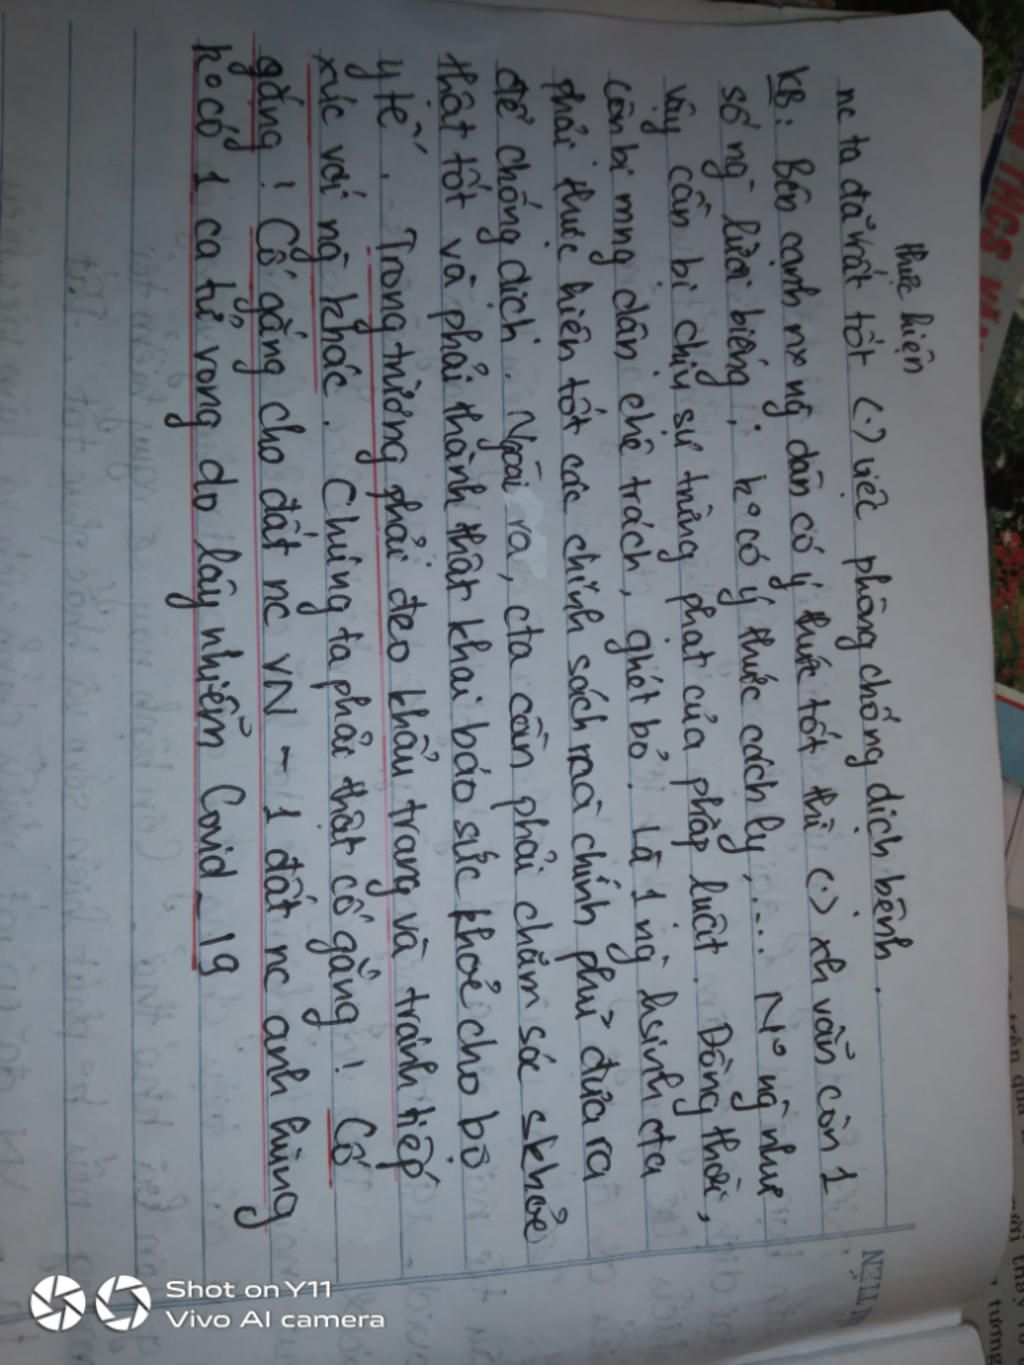 thực hiện
nc ta đã rất tốt (.) việc phòng chống dịch bệnh.
KB: Bên cạnh nx ng dân có ý thức tốt thì (.) xh vẫn còn 1
số ng lười biếng, ko có ý thức cách ly,.... N° ng như
vậy cần bị chịu sự trừng phạt của pháp luật. Đồng thời,
còn bị mng dân chê trách, ghét bỏ. Là 1 ng hsinh cta
phải thực hiện tốt các chính sách mà chính phủ đưa ra
để chống dịch. Ngoài ra, cta cần phải chăm sóc skhoẻ
thật tốt và phải thành thật khai báo sức khoẻ cho bộ
y tế. Trong trường phải đeo khẩu trang và tránh tiếp
xúc với ng khác. Chúng ta phải thật cố gắng! Cố
gắng! Cố gắng cho đất nc VN - 1 đất nc anh hùng
ko có 1 ca tử vong do lây nhiễm Covid_19
Shot on Y11
Vivo AI camera